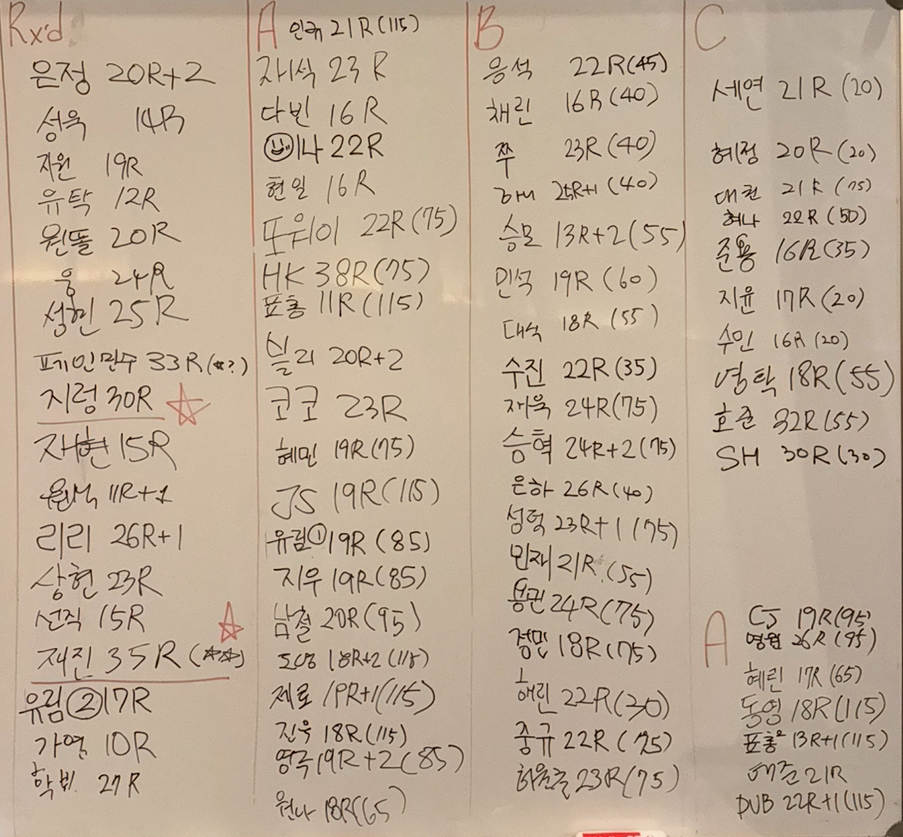 Rx'd
은정 20R+2
성욱 14R
지원 19R
유탁 12R
원똘 20R
웅 24R
성헌 25R
포기인민수 33R
지렁 30R
재현 15R
원석 11R+1
리리 26R+1
상현 23R
선직 15R
재진 35R
유림② 17R
가영 10R
학비 27R
A
인규 21R(115)
재식 23R
다빈 16R
이나 22R
현일 16R
또워이 22R(75)
HK 38R(75)
표총 11R(115)
실리 20R+2
코코 23R
혜민 19R(75)
JS 19R(115)
유림① 19R(85)
지우 19R(85)
남철 20R(95)
도영 18R+2(115)
제로 19R+1(115)
진욱 18R(115)
영국 19R+2(85)
원나 18R(65)
B
응석 22R(45)
채린 16R(40)
쭈 23R(40)
하니 (40)
승모 13R+2(55)
민석 19R(60)
대식 18R(55)
수진 22R(35)
재욱 24R(75)
승혁 24R+2(75)
은하 26R(40)
성혁 23R+1(75)
민재 21R(55)
용권 24R(75)
경민 18R(75)
해린 22R(30)
중규 22R(75)
23R(75)
C
세연 21R(20)
혜정 20R(20)
대현 21R(75)
혜나 22R(50)
준용 16R(35)
지윤 17R(20)
수민 16R(20)
영탁 18R(55)
호준 32R(55)
SH 30R(30)
A
CJ 19R(95)
영원 26R(95)
혜린 17R(65)
동영 18R(115)
표총² 13R+1(115)
태준 21R
DUB 22R+1(115)